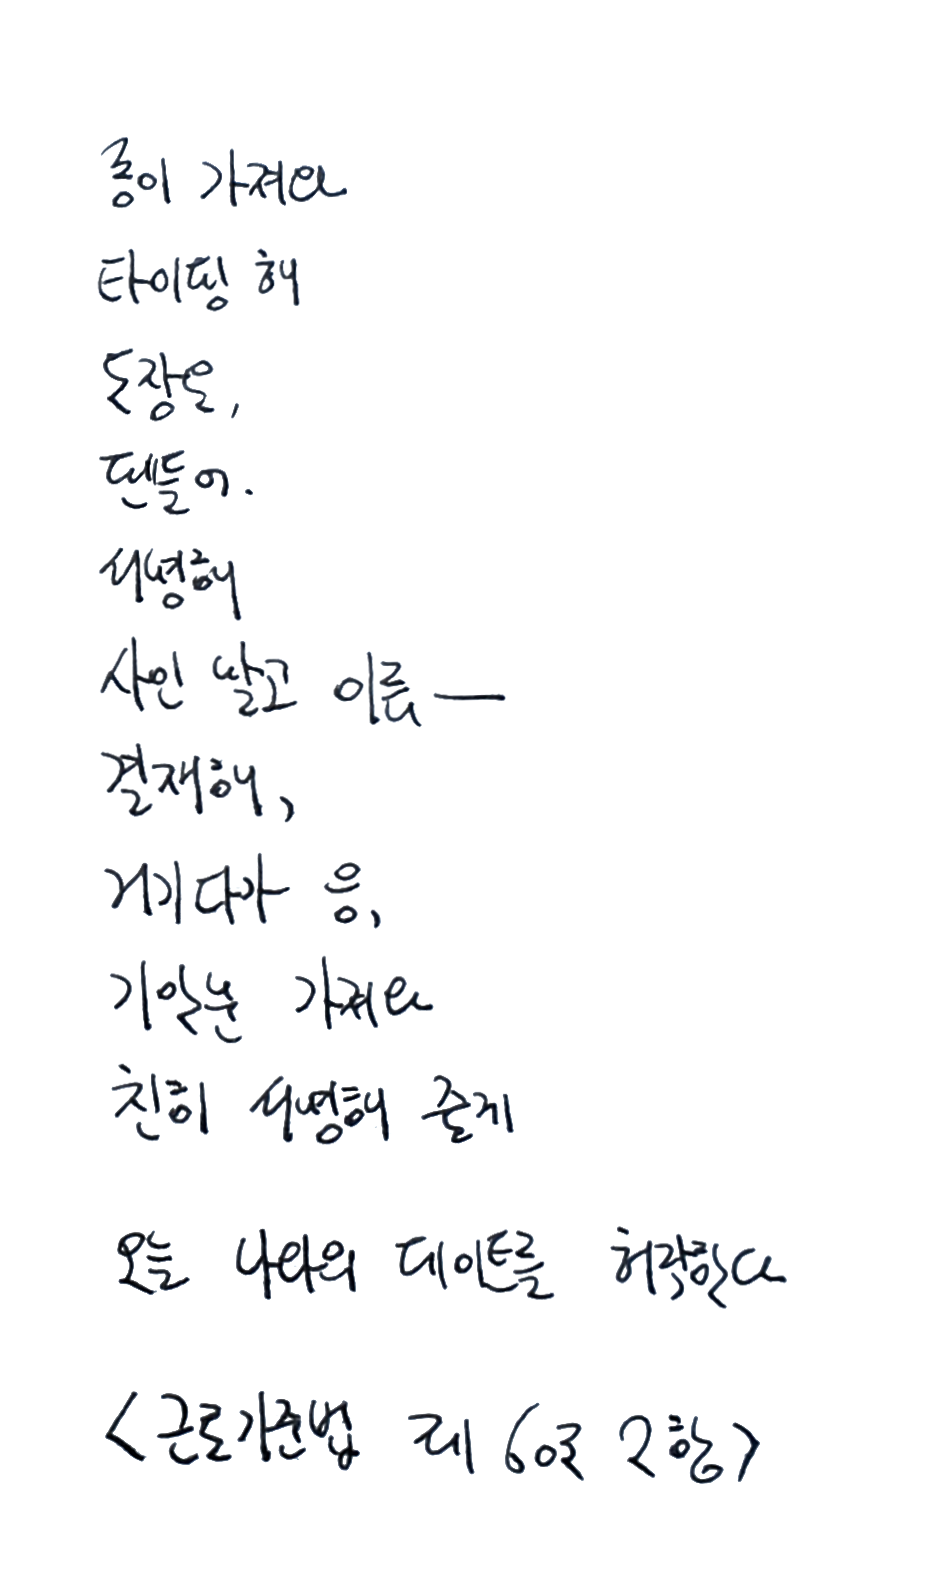 종이 가져와
타이핑 해
도장은,
땐들어.
서명해
사인 말고 이름—
결재해,
거기다가 응,
기일분 가져와
친히 서명해 줄게
오늘 나와의 데이트를 허락한다
<근로기준법 제 60조 2항>